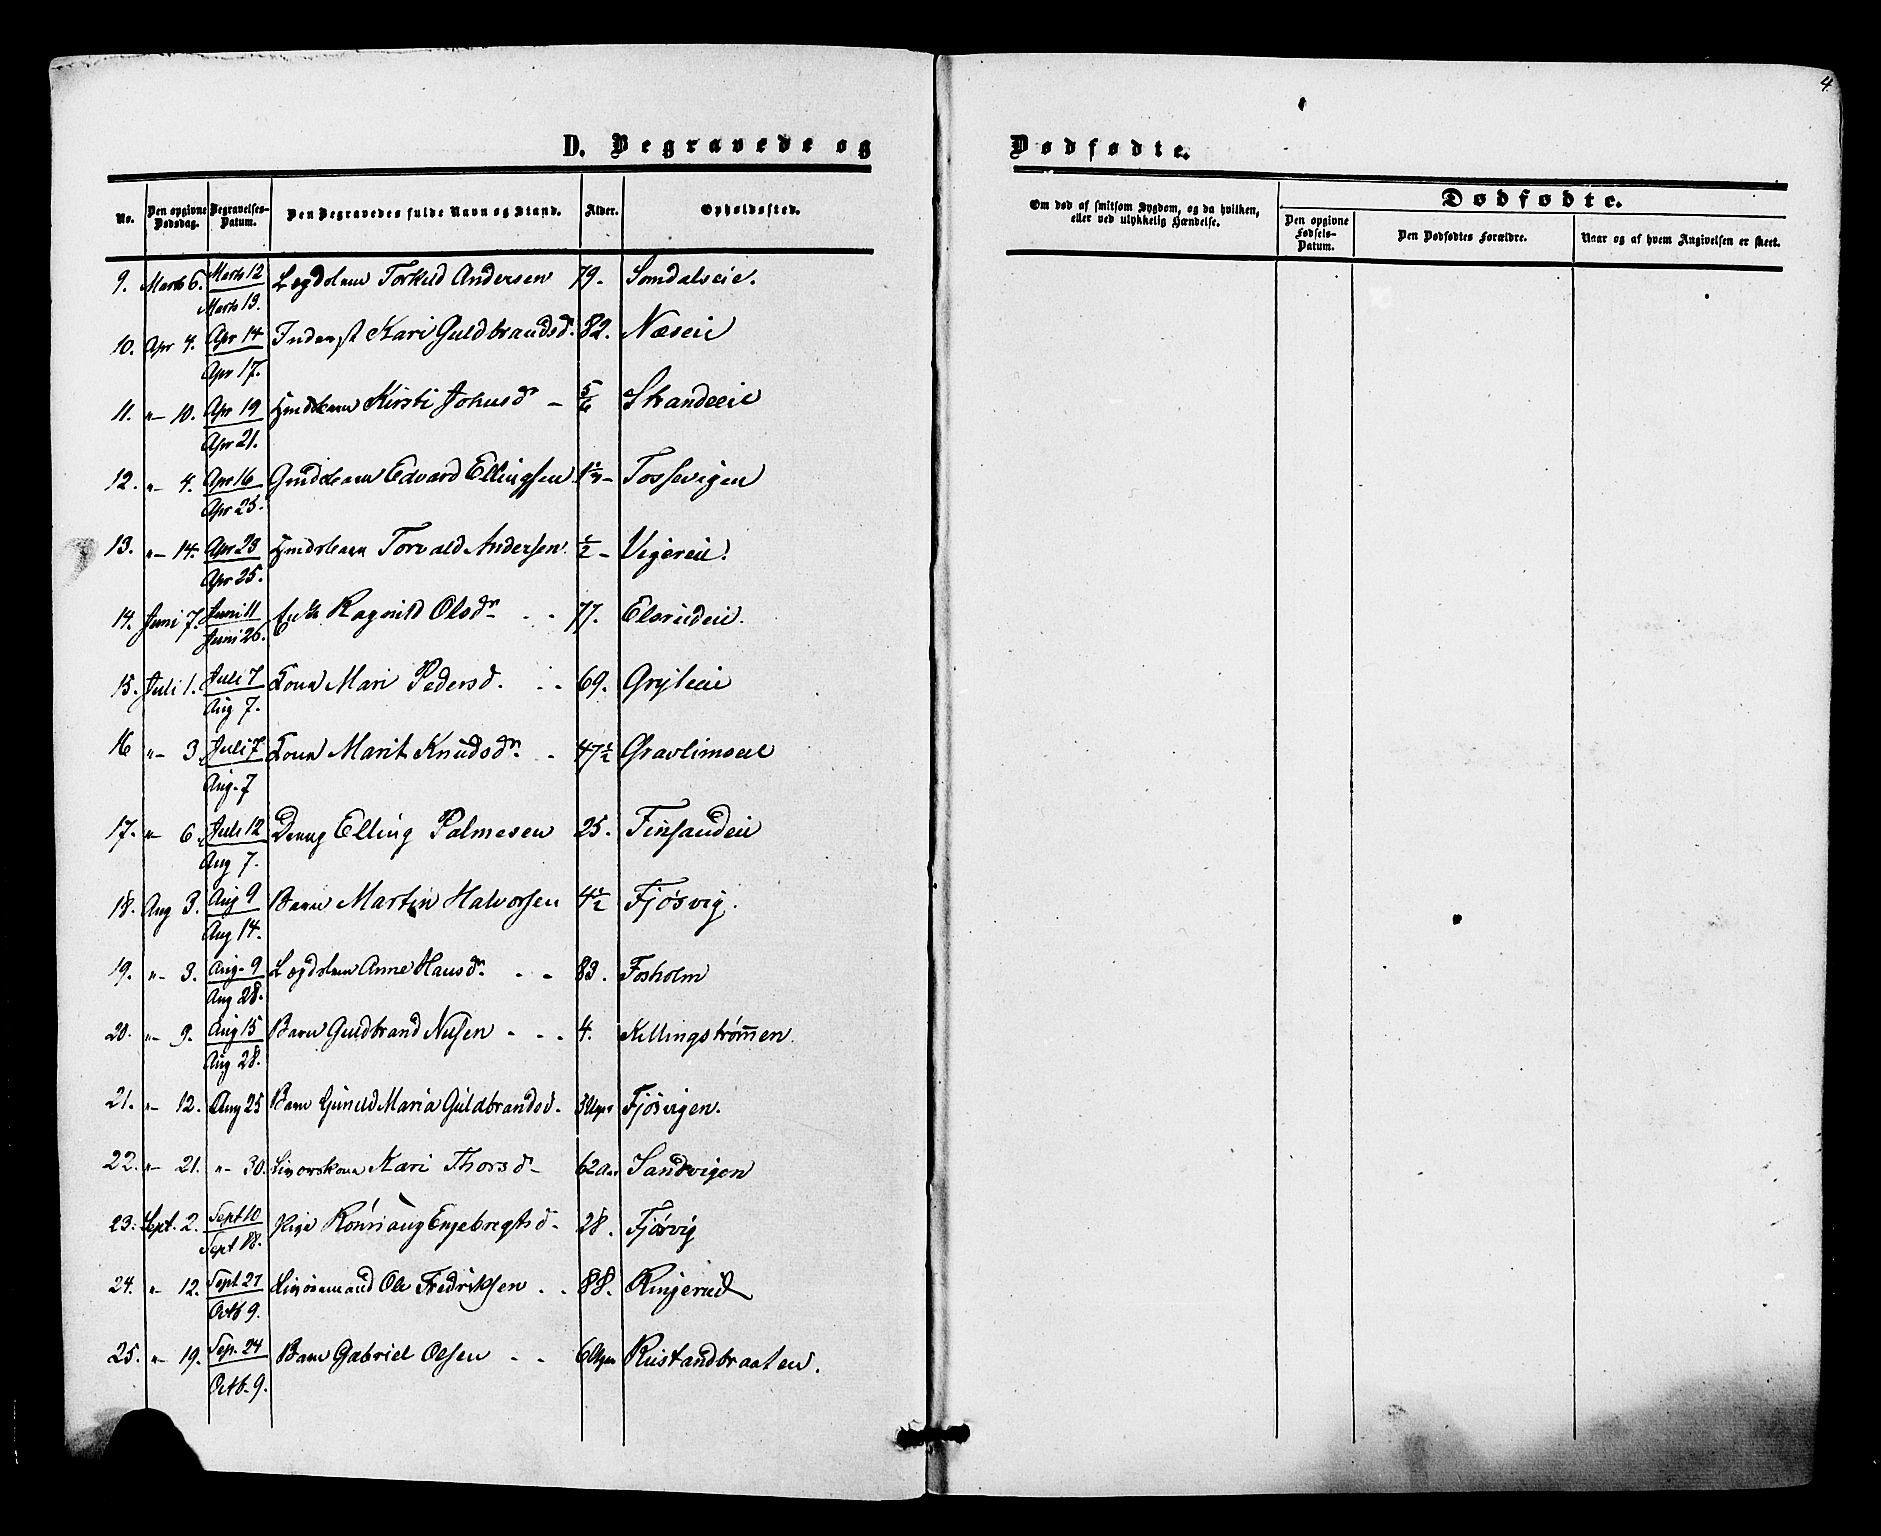 4.
D. Begravede og Dødfødte.
No. | Den opgivne Dødsdag. | Begravelses-Datum. | Den Begravedes fulde Navn og Stand. | Alder. | Opholdssted. | Om død af smitsom Sygdom, og da hvilken, eller ved ulykkelig Hændelse. | Dødfødte. | Den opgivne Fødsels-Datum. | Den Dødfødtes Forældre. | Naar og af hvem Angivelsen er skeet.
9. Marts 6. Marts 12 Marts 13. Lægdslem Torkild Andersen 79. Somdalseie.
10. Apr 4. Apr 14 Apr 17. Inderst Kari Guldbrandsd. 82. Næseie
11. "- 10. Apr 19 Apr 21. Kirsti Johnsdr - 5/6 Strandeeie
12. "- 4. Apr 16 Apr 25. Edvard Ellingsen Tossevigen
13. "- 14. Apr 23 Apr 25. Torvald Andersen. 1/2 - Vegereie.
14. Juni 7. Juni 11 Juni 26. Enke Ragnild Olsdr - - 77. Elsrudeie.
15. Juli 1. Juli 7 Aug 7. Kona Mari Pedersd. - - 69. Gryteeie
16 "- 3. Juli 7 Aug. 7 Kona Marit Knudsdr - 47 1/2 Gravlimoeie
17. "- 6. Juli 12 Aug 7. Dreng Elling Palmesen 25. Finsandeie
18. Aug 3. Aug 9 Aug 14. Barn Martin Halvorsen 4 1/2 Fjøsvig.
19. "- 3. Aug. 9 Aug 28. Lægdslem Anne Hansdr. - - 83. Fosholm
20. "- 9. Aug 15 Aug 28. Barn Guldbrand Nilsen - - - 4. Killingstrømmen.
21. "- 12. Aug 25 Barn Gunild Maria Guldbrandsd. Fjøsvigen.
22. "- 21. "- 30. Kari Thorsd - 62 Aar Sandvigen
23. Sept. 2. Sept 10 Sept 18. Pige Rønnaug Engebregtsd - 28. Fjøsvig
24. "- 12. Sept 27 Octb 9. Ole Fredriksen - - 88. Ringerud
25. "- 19. Sep. 24 Octb. 9. Barn Gabriel Olsen - - 6 Uger Rustandbraaten.